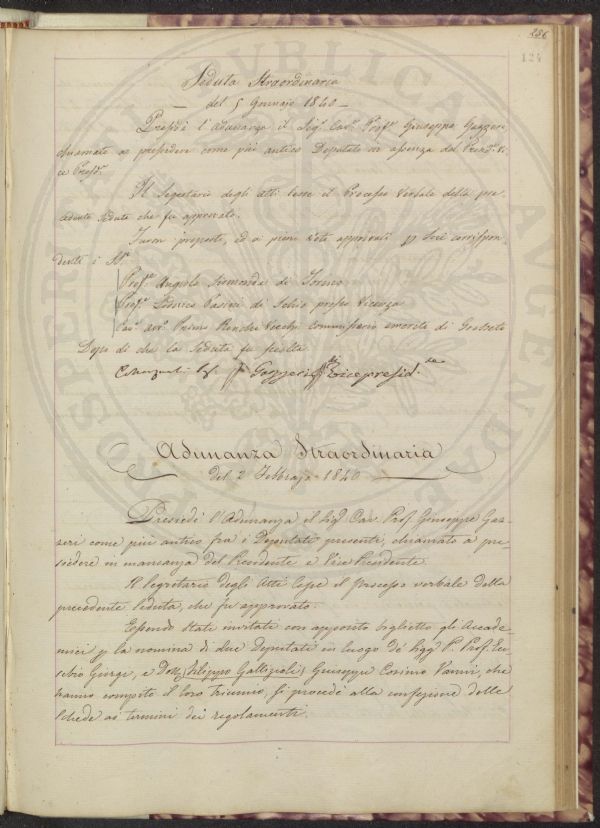 286
124
Seduta Straordinaria
del 5 Gennajo 1840
Presedè l'adunanza il Sig. Cav. Prof. Giuseppe Gazzeri
chiamato a presedere come più antico Deputato in assenza del Presid. e Vi-
ce Presid.
Il Segretario degli atti lesse il Processo verbale della pre-
cedente seduta che fu approvato.
Furon proposti, ed a pieni voti approvati p Soci corrispon-
denti i SS.
Prof. Angelo Sismonda di Torino
Prof. Lodovico Pasini di Schio presso Vicenza
Cav. Avv. Primo Ronchivecchi Commissario emerito di Grosseto
Dopo di che la Seduta fu sciolta
Gazzeri Vicepresid.te
Adunanza Straordinaria
del 2 Febbrajo 1840
Presiedè l'Adunanza il Sig. Cav. Prof. Giuseppe Gaz-
zeri come più antico fra i Deputati presente, chiamato a pre-
siedere in mancanza del Presidente e Vice Presidente.
Il Segretario degli Atti lesse il processo verbale della
precedente seduta, che fu approvato.
Essendo stati invitati con apposito biglietto gli Accade-
mici p la nomina di due Deputati in luogo de' Sigg. P. Prof.
Giorgi, e Dott. Filippo Gallizioli, Giuseppe Cosimo Vanni, che
hanno compito il loro Triennio, si procedè alla confezione delle
schede ai termini dei regolamenti.
PROSPERITATI PUBLICAE AUGENDAE